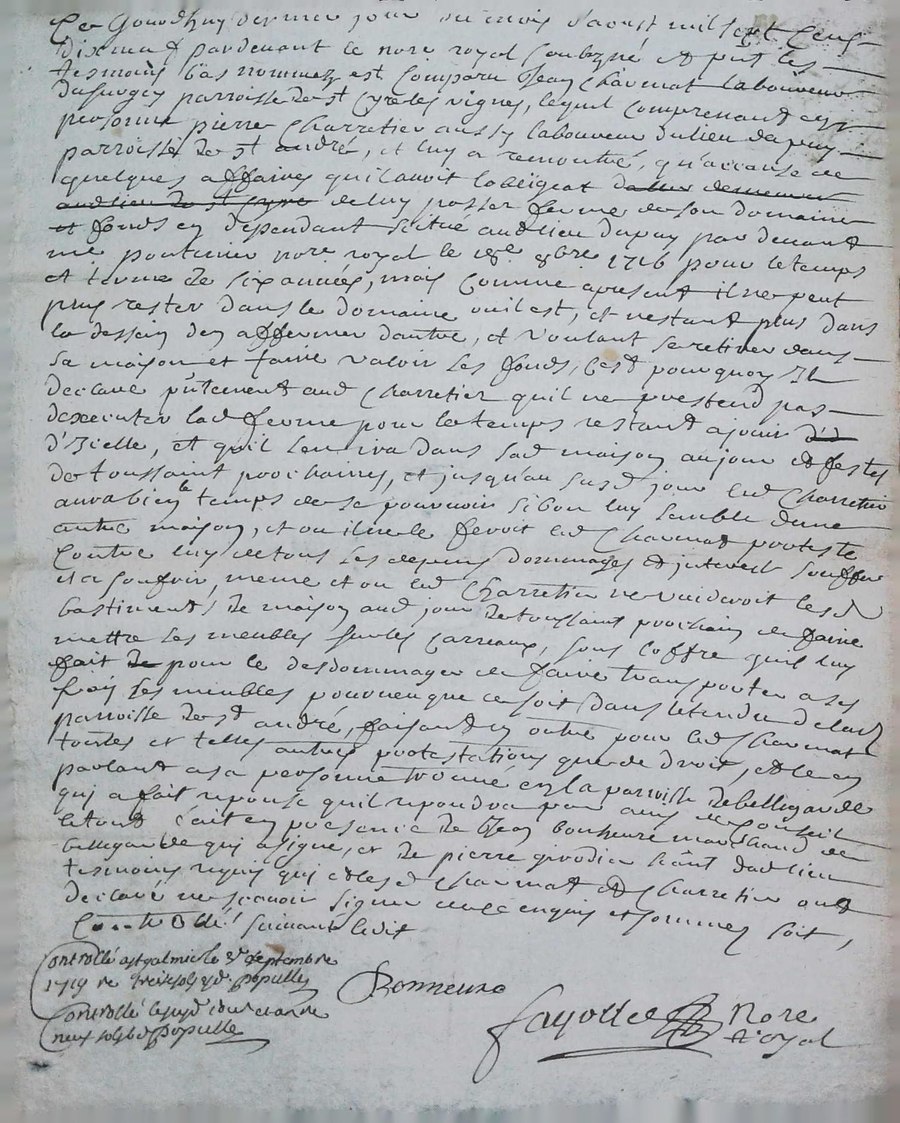 Ce Jourdhuy dernier jour du mois d'aoust mil sept cens
dixneuf pardevant le nore royal soubzné et pnt les
tesmoins bas nommez est comparu Jean Charmat laboureur
parroisse de st Cyre les vignes, lequel comprenant en
personne pierre Charretier aussy laboureur du lieu dupuy
parroisse de st andré, et luy a remontré, qu'acause de
quelques affaires quil avoit lobligeat
au lieu de st Cyre de luy passer ferme de son domaine
et fonds en dependant situé aud lieu dupuy par devant
me pontenier nore royal le 18e 8bre 1716 pour le temps
et terme de six années, mais comme apresent il ne peut
plus rester dans le domaine ouil est, et nestant plus dans
le dessein den affermer dautre, et voulant se retirer dans
sa maison et faire valoir ses fonds, Cest pourquoy Il
declare pntement aud Charretier quil ne pretend pas
dexecuter lad ferme pour le temps restant ajouir
d'Icelle, et quil sen ira dans sad maison aujour et feste
de toussaint prochaines, et jusqu'au susd jour led Charretier
aura bien le temps de se pourvoir si bon luy semble dune
autre maison, et ou il ne le feroit led Charmat proteste
Contre luy de tous ses depens dommages et interest souffers
et a soufrir, meme et ou led Charretier ne vuideroit lesd
bastiments de maison aud jour de toussaint prochain de faire
mettre ses meubles sur les carreaux, sous l'offre quil luy
fait de pour le desdommager de faire transporter a ses
frais ses meubles pourveu que ce soit dans letendue de lad
parroisse de st andré, faisant en outre pour led Charmat
toutes et telles autres protestations que de droit, et le en
parlant a sa personne trouvé en la parroisse de bellegarde
qui a fait reponse quil repondra par avis de Conseil
le tout fait en presence de Jean bonheure marchand de
bellegarde qui a signé, et de pierre girodier dud lieu
tesmoins requis qui et lesd Charmat et Charretier ont
declaré ne scavoir signer de ce enquis et sommez soit,
Controllé suivant ledit
Controllé a st galmier le 3e septembre
1719 re treize sols 4d. Populle
Controllé
neuf sols 6d Populle
Bonneure
Fayolle Nore
Royal